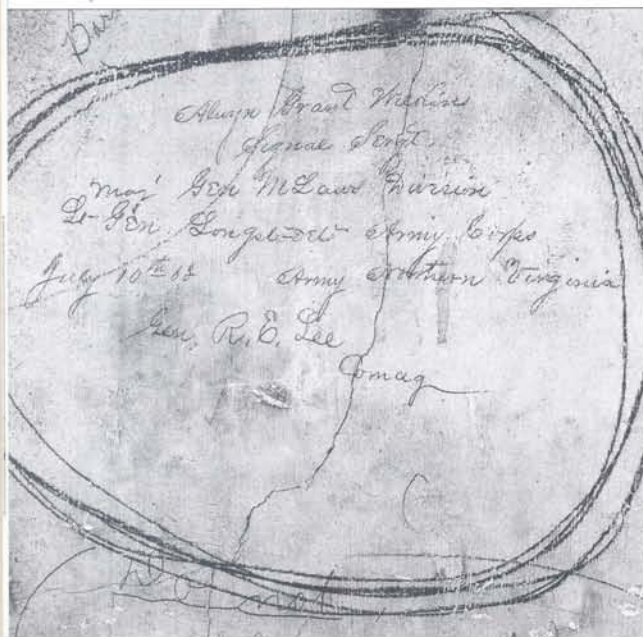 Bar
Grant
Signal Sergt.
Maj' Gen McLaws Division
Lt Gen Longstreet Army Corps
July 10th 63 Army Northern Virginia
Gen, R. E. Lee
Comdg